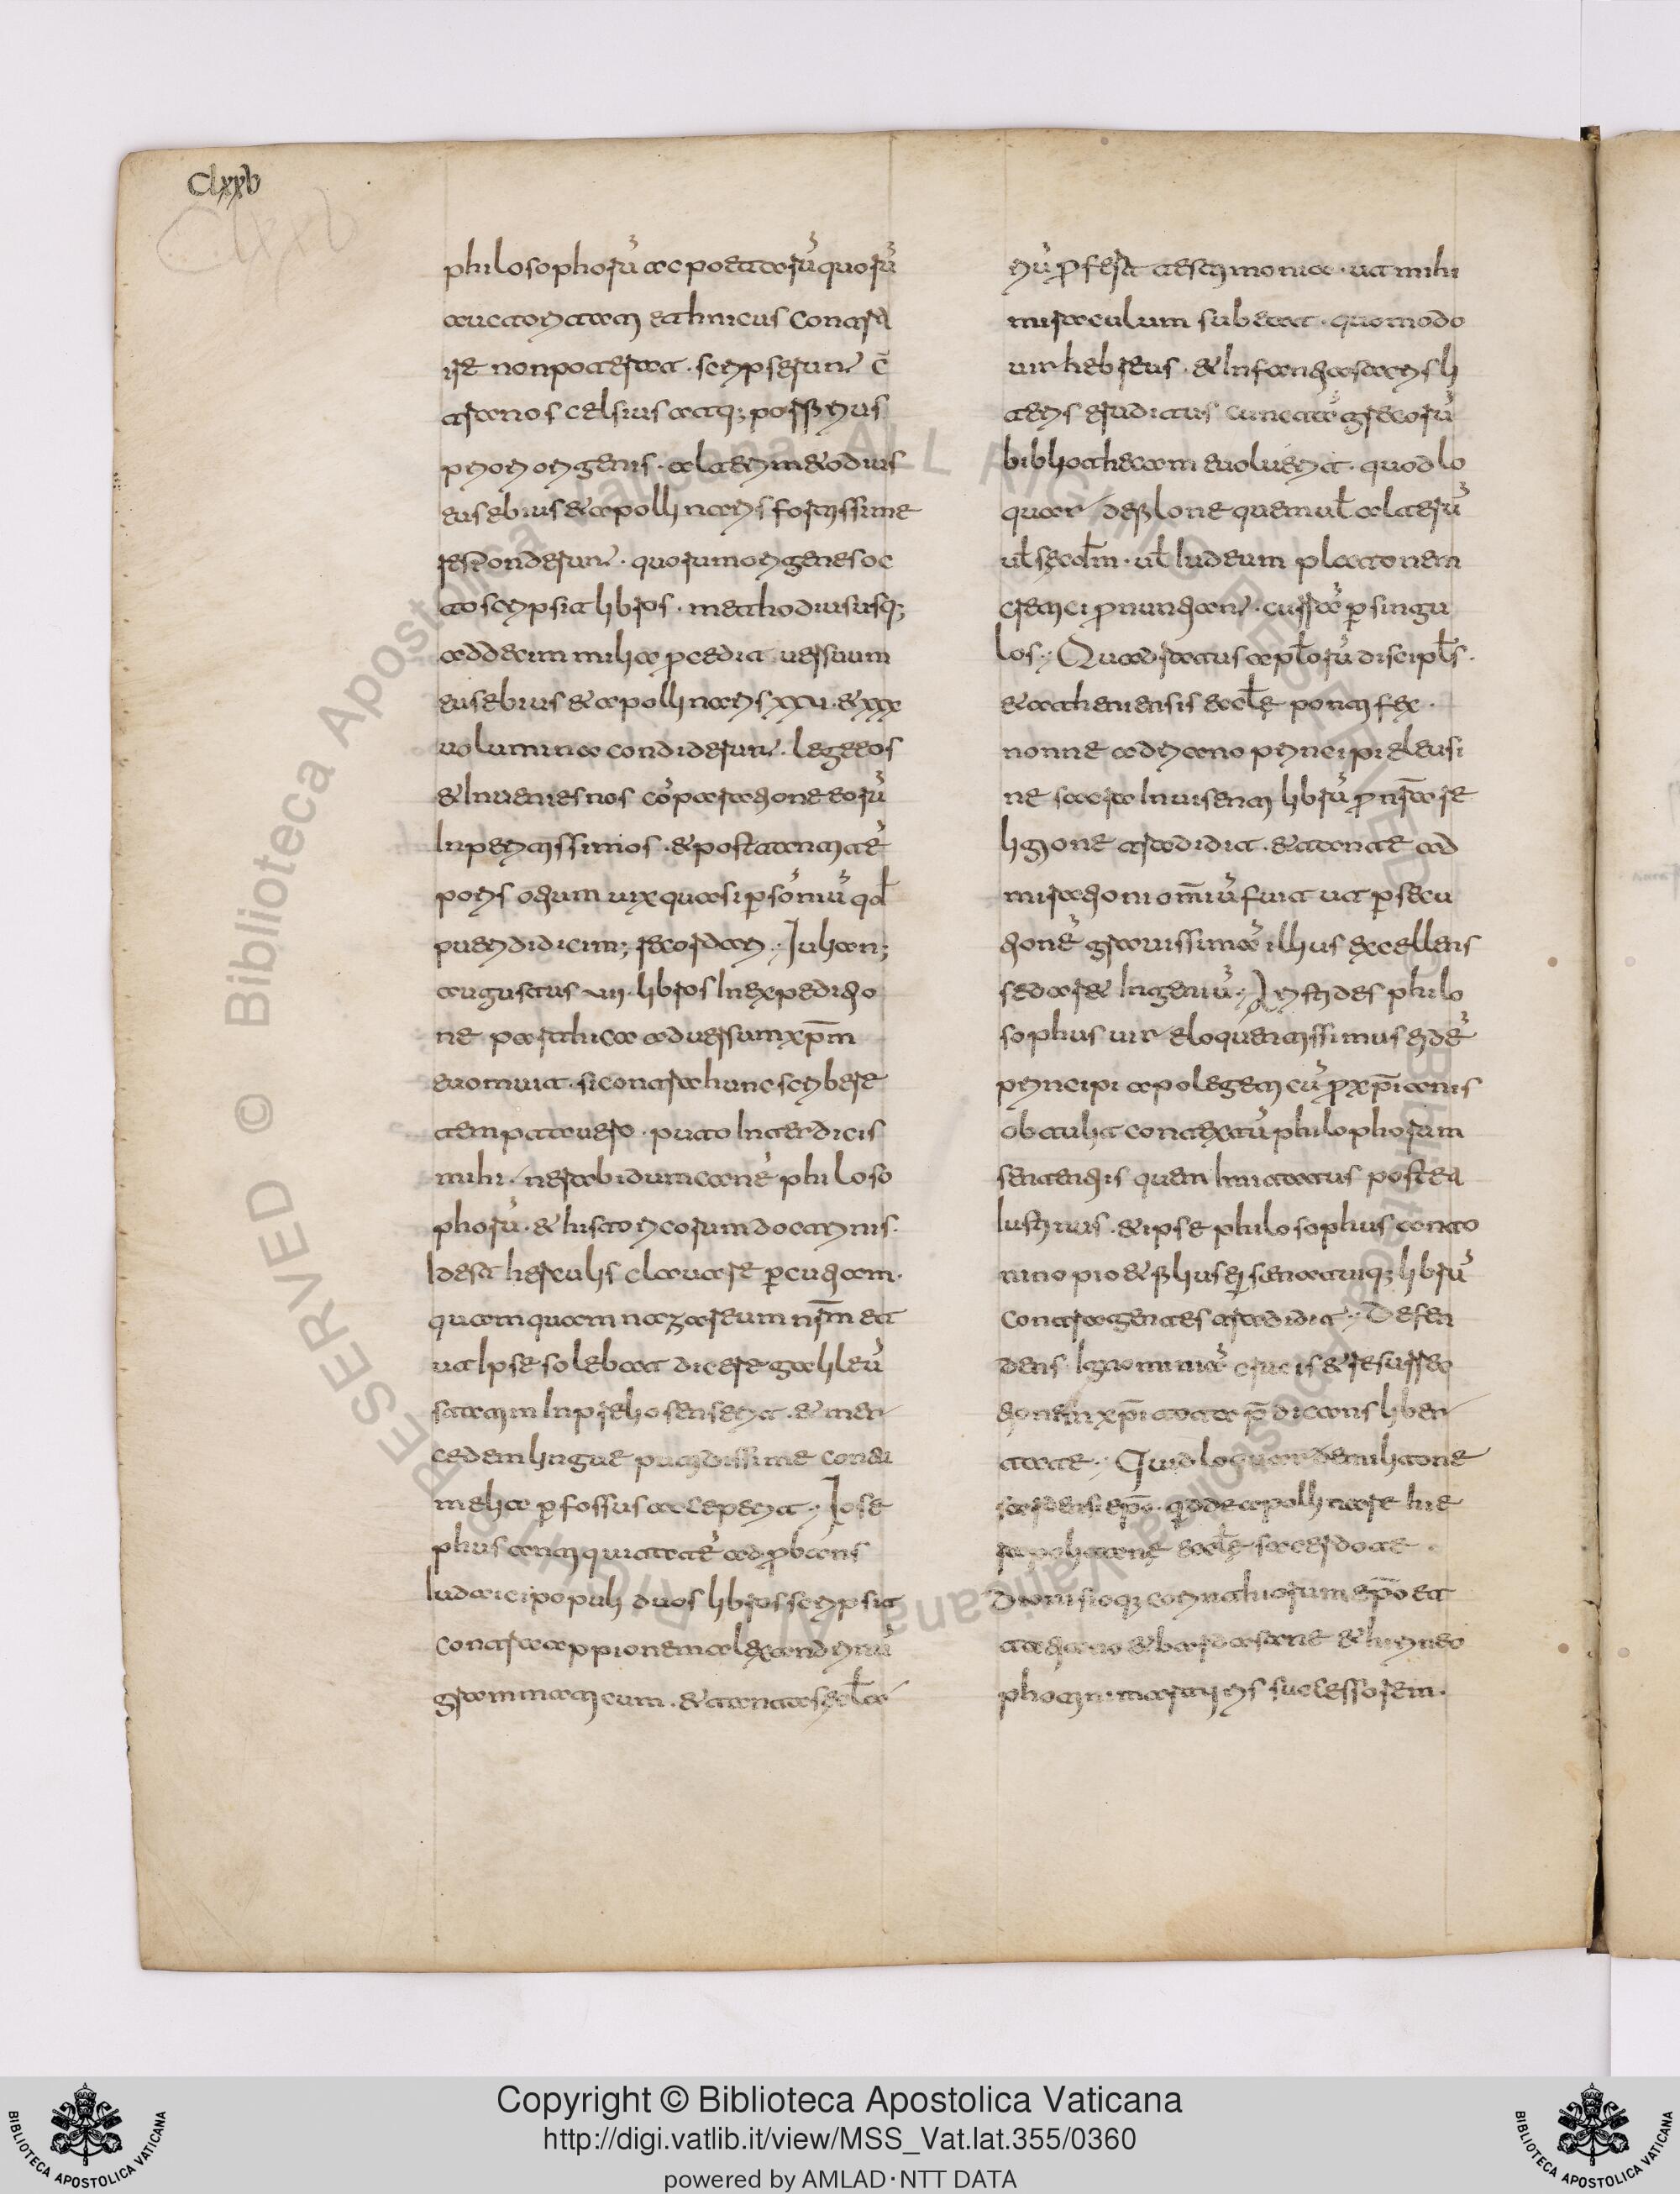 Clxxb
Clxxb
philosophorū ac poetarū quorū
auctoritati ethnicus contra
ire non poterat. scripserunt c̄
tra nos celsius atq; porfyrius
priori origenis. alteri meodius
eusebius & apollinaris fortissime
responderunt. quorum origenes oc
to scripsit libros. methodius usq;
ad decim milia pcedit uersuum
eusebius & apollinaris xxu. & xxx
uolumina condiderunt. lege eos
& Inuenies nos cōparatione eorū
Inperitissimos. & post tanti tē
poris otium uix quasi p somniū qd
pueri didicim; recordari. Iulian;
augustus uii. libros In expeditio
ne parthica aduersum xp̄m
euomuit. si contra hunc scribere
temptauero. puto Interdicis
mihi. ne rabidum canē philoso
phorū. & historicorum doctrinis.
Idest herculis claua repercutiam.
quamquam nazareum nr̄m et
ut Ipse solebat dicere galileū
statim In prelio senserit. & mer
cedem lingue putidissime conti
melia pfossus acceperit. Iose
phus antiquitatē adprobans
Iudaici populi duos libros scripsit
contra appionem alexandrinū
grammaticum. & tantas sclaˉ
riū pfert testimonia. ut mihi
miraculum subeat. quomodo
uir hebreus. & Inf antia sacris li
teris eruditus cunctā grecorū
bibliothecam euoluerit. quod lo
quar de filone quem ul alterū
ul secdm. ul Iudeum platonem
critici pnuntiant. currā p singu
los. Quadratus aplorū discipls.
& atheniensis eccle pontifex.
nonne adriano principi eleusi
ne sacra Inuisenti librū p nr̄a re
ligione tradidit. & tante ad
mirationi omniū fuit ut psecu
tionē grauissimā illius excellens
sedar& Ingeniū. Aristides philo
sophus uir eloquentissimus eidē
principi apolegeticū p xp̄ianis
obtulit contextū philophorum
sententiis quem Imitatus postea
Iustinus. & ipse philosophus conto
nino pio & filius ei senatuiq; librū
contra gentes tradidit. Defen
dens Ignominiā crucis & resurrec
tionem xp̄i tota p̄dicans liber
tate. Quid loquar de militone
sardensi epo. qd de apollinare hie
rapolitane eccle sacerdote.
Dionisioq; corinthiorum epo et
tatiano & bardasane & hirineo
photini martiris successorem.
© Biblioteca Apostolica Vaticana ALL RIGHTS RESERVED
Copyright © Biblioteca Apostolica Vaticana
http://digi.vatlib.it/view/MSS_Vat.lat.355/0360
powered by AMLAD·NTT DATA
BIBLIOTECA APOSTOLICA VATICANA
BIBLIOTECA APOSTOLICA VATICANA